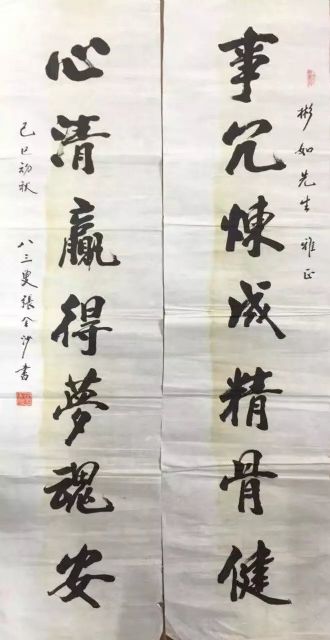 彬如先生 雅正
事冗煉成精骨健
心清贏得夢魂安
己巳初秋 八三叟張書